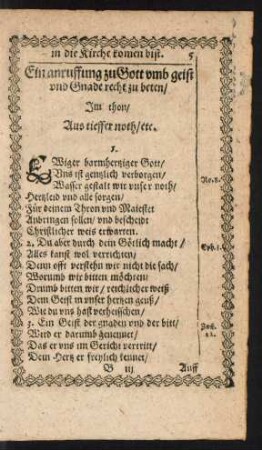 in die Kirche komen bist. 5
Ein anruffung zu Gott vmb geist
vnd Gnade recht zu beten/
Im thon/
Aus tieffer noth/etc.
1.
EWiger barmhertziger Gott/
Vns ist gentzlich verborgen/
Wasser gestalt wir vnser noth/ Ro.8.
Hertzleid vnd alle sorgen/
Für deinem Thron vnd Maiestet
Anbringen sollen/ vnd bescheidt
Christlicher weis erwarten.
2. Du aber durch dein Götlich macht/ Eph.1.
Alles kanst wol verrichten/
Denn offt verstehn wir nicht die sach/
Worumb wir bitten möchten:
Drumb bitten wir/ reichlicher weiß
Dein Geist in vnser hertzen geuß/
Wie du vns hast verheisschen/
3. Ein Geist der gnaden vnd der bitt/ Zach.
Wird er darumb genennet/ 12.
Das er vns im Gericht vertritt/
Dein Hertz er freylich kennet/
B iij Auff